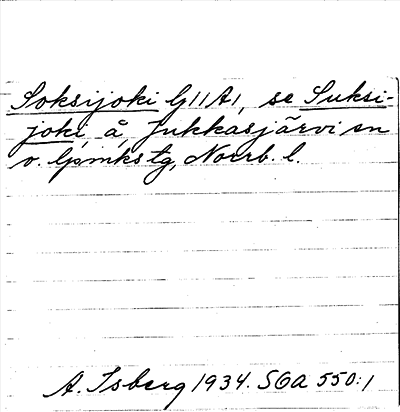 Soksijoki G11A1, se Suksi-
joki, å, Jukkasjärvi sn
o. lpmkstg, Norrb. l.
A. Isberg 1934. SOA 550:1